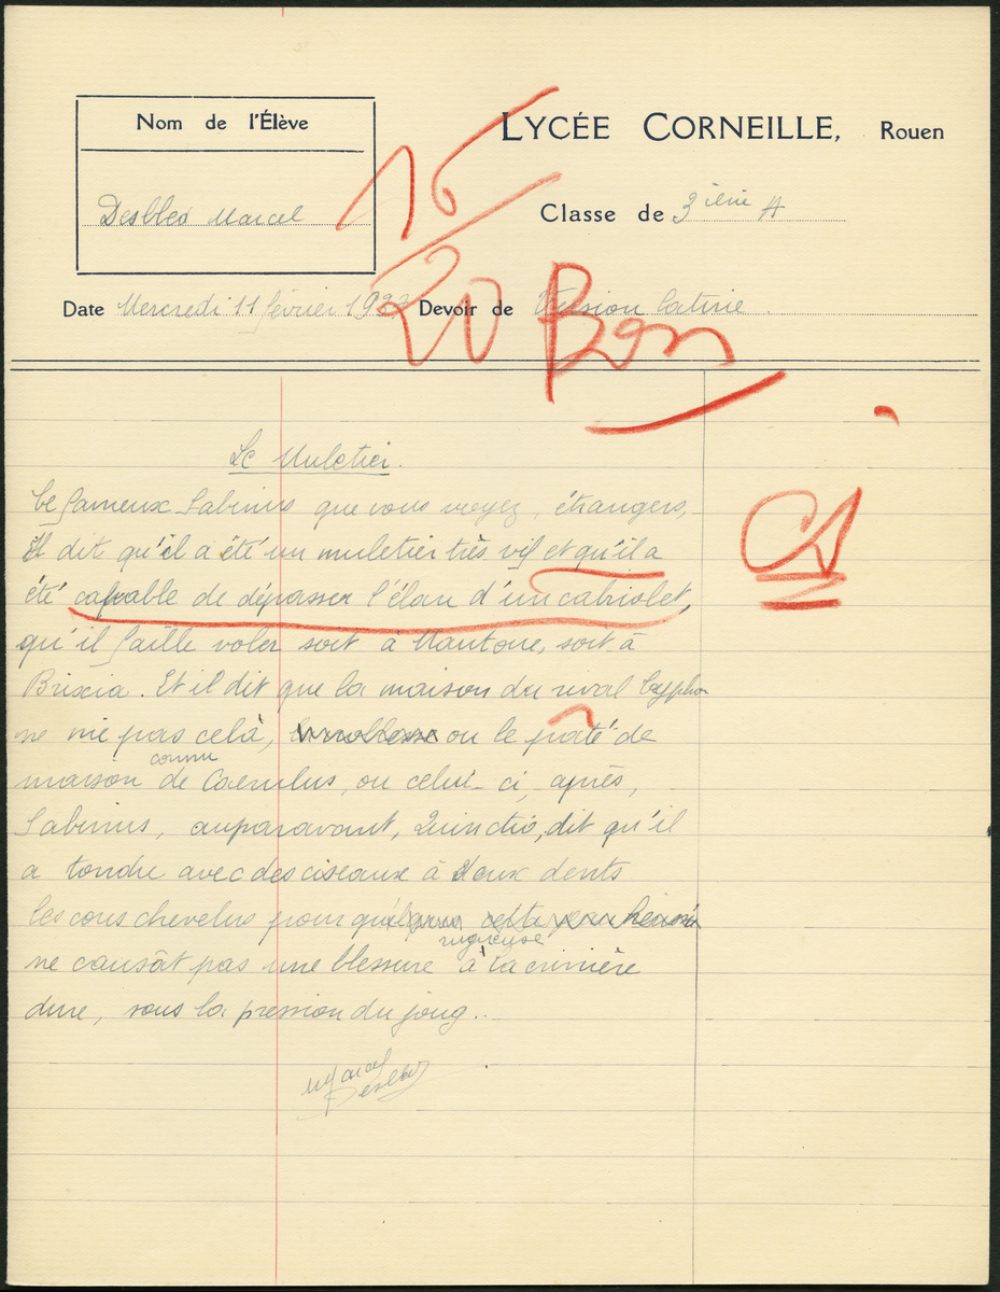 Nom de l'Élève
LYCÉE CORNEILLE, Rouen
Marcel
Classe de 3ième A
16
20
Bon
Date Mercredi 11 février Devoir de Version latine
Le Muletier.
Ce fameux Sabinus que vous voyez, étrangers,
Il dit qu'il a été un muletier très vif et qu'il a
été capable de dépasser l'élan d'un cabriolet,
qu'il faille voler soit à Mantoue, soit à
Brixia. Et il dit que la maison du rival
ne nie pas cela, ou le pâté de
connu
maison de Caerulus, ou celui-ci, après,
Sabinus, auparavant, Quinctio, dit qu'il
a tondu avec des ciseaux à deux dents
les cous chevelus pour
rugueuse
ne causât pas une blessure à la crinière
dure, sous la pression du joug..
Marcel